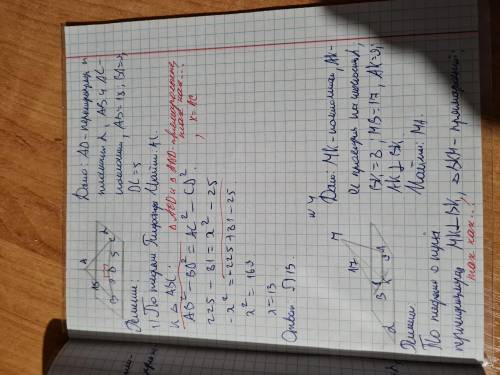 Дано: AD - перпендикуляр к
плоскости α, AB и AC -
наклонные, AB = 15, BD = 9,
DC = 5
Найти: AC.
Решение:
1) По теореме Пифагора
△ABD и △ADC - прямоугольные,
так как...
AB² - BD² = AC² - CD²
225 - 81 = x² - 25
, x = AC
-x² = -225 + 81 - 25
x² = 169
x = 13
Ответ: 13.
№4
Дано: MK - наклонная, AK -
её проекция на плоскость α,
BK = 8, MB = 17, AK = 9,
AK ⊥ BK
Найти: MA.
Решение:
По теореме о трёх
перпендикулярах MK ⊥ BK, △BKM - прямоугольный.
так как...,